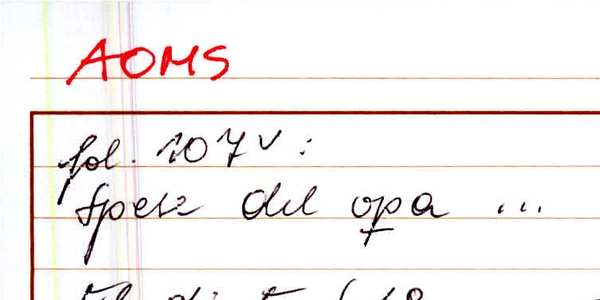 AOMS
fol. 107v:
Spese del opa ...